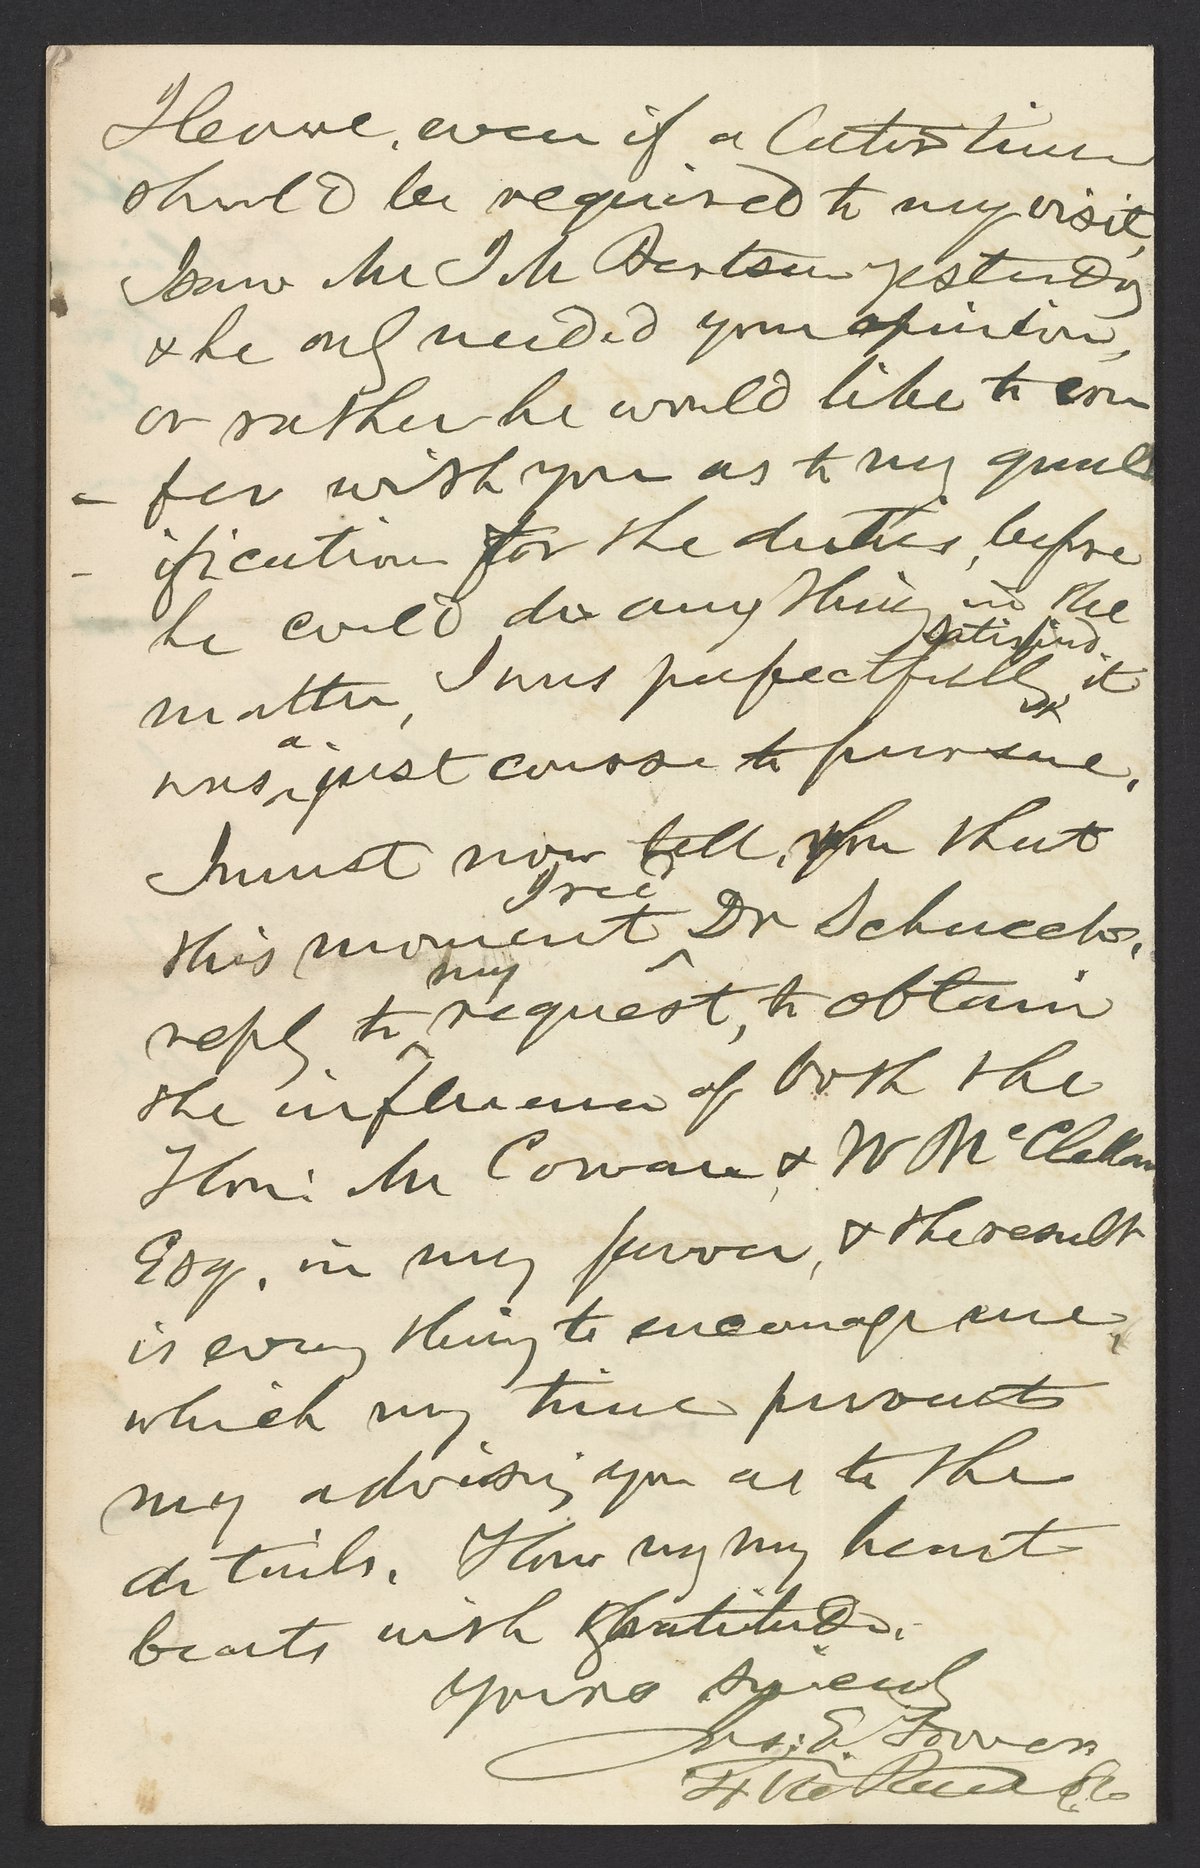 even if a later time
should be required to my visit,
I saw Mr I M yesterday
& he only needed your opinion,
or rather he would like to con
- fer with you as to my quali
- ification for the duties, before
he could do anything in the
satisfied
matter, I was perfectfully it
was a just course to pursue.
I must now tell, you that
I rec'd
this moment Dr
my
reply to request, to obtain
the influence of both the
Hon: Mr Cowan & W McClellan
Esq. in my favor, & the result
is every thing to encourage me,
which my time prvents
my advising you as to the
details. How my my heart
beats with gratitude.
yours
Jas: E.